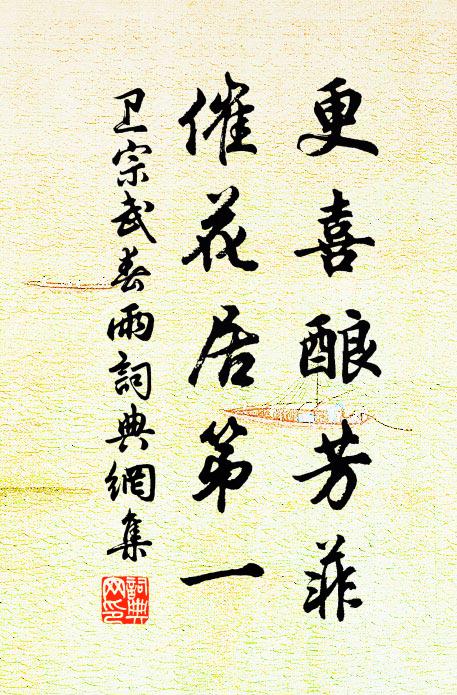 更喜酿芳菲
催花居第一
卫宗武春雨詞典網集
詞典网印